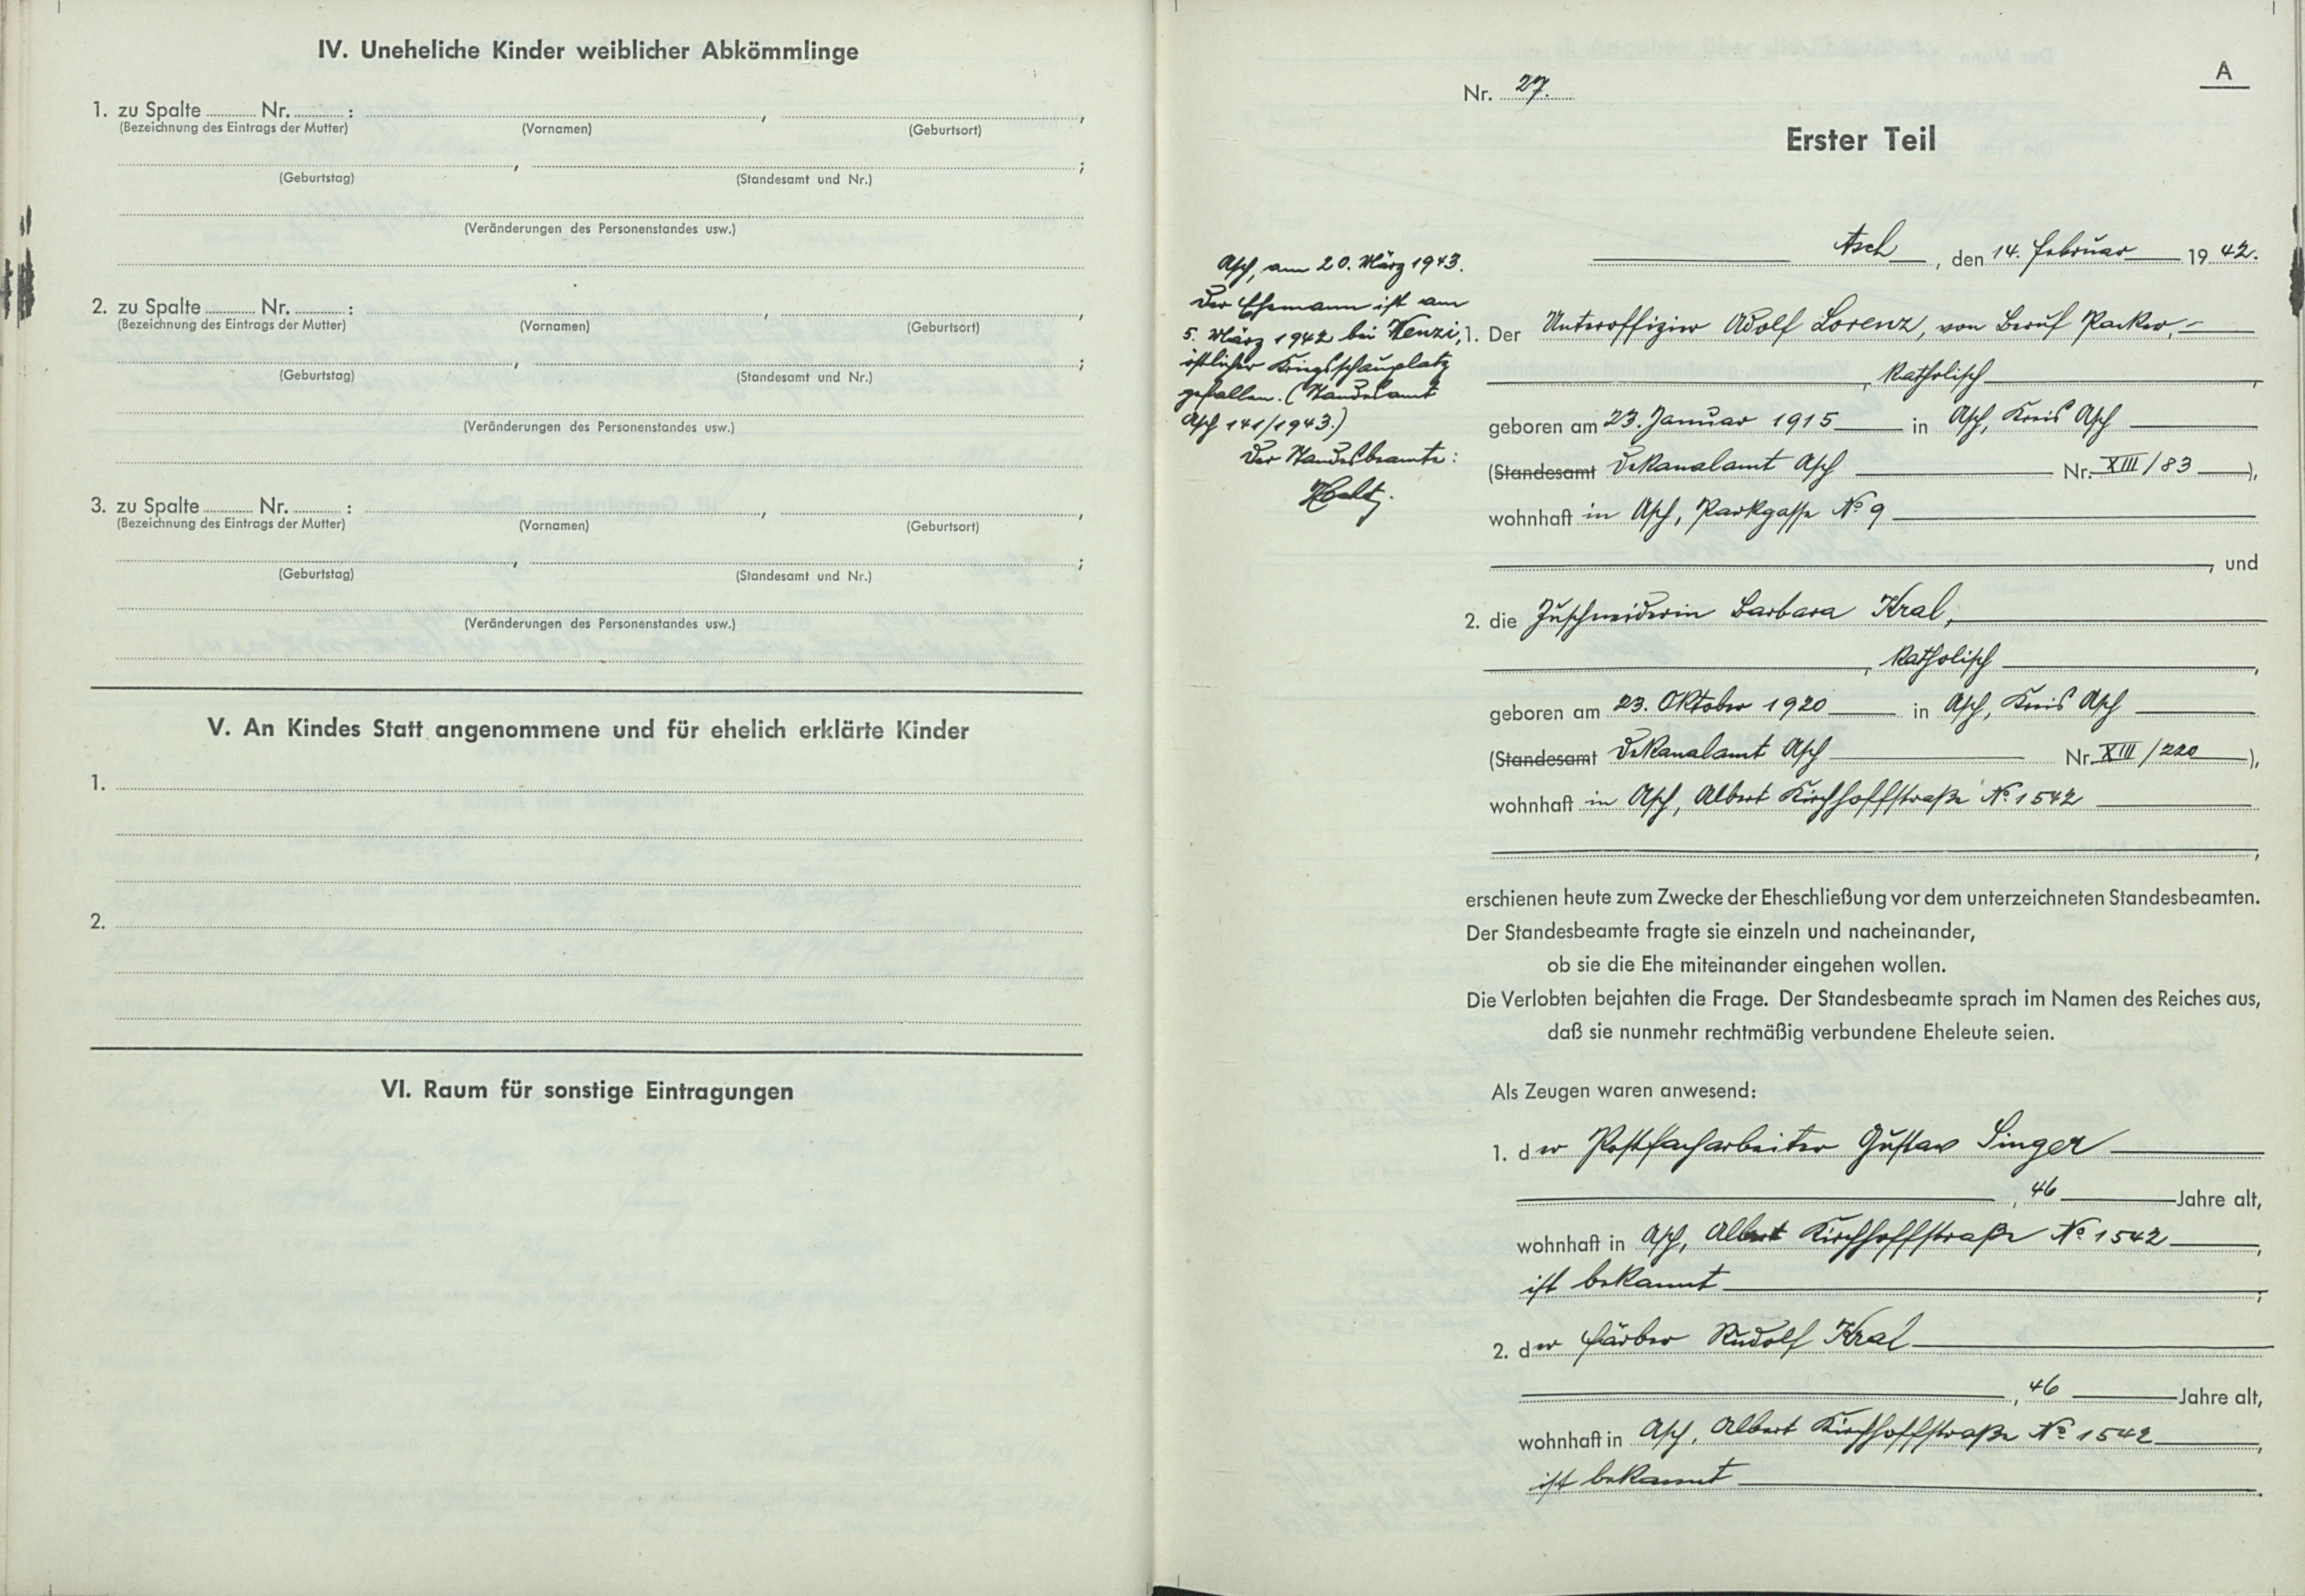 IV. Uneheliche Kinder weiblicher Abkömmlinge
1. zu Spalte ........ Nr. ........ : , ,
(Bezeichnung des Eintrags der Mutter) (Vornamen) (Geburtsort)
, ;
(Geburtstag) (Standesamt und Nr.)
(Veränderungen des Personenstandes usw.)
2. zu Spalte ........ Nr. ........ : , ,
(Bezeichnung des Eintrags der Mutter) (Vornamen) (Geburtsort)
, ;
(Geburtstag) (Standesamt und Nr.)
(Veränderungen des Personenstandes usw.)
3. zu Spalte ........ Nr. ........ : , ,
(Bezeichnung des Eintrags der Mutter) (Vornamen) (Geburtsort)
, ;
(Geburtstag) (Standesamt und Nr.)
(Veränderungen des Personenstandes usw.)
V. An Kindes Statt angenommene und für ehelich erklärte Kinder
1.
2.
VI. Raum für sonstige Eintragungen
A
Nr. 27.
Erster Teil
Asch, den 14. Februar 19 42.
Asch, am 20. März 1943.
Der Ehemann ist am
5. März 1942 bei Wenzi,
östlicher Kriegsschauplatz
gefallen. (Standesamt
Asch 141/1943.)
Der Standesbeamte:
1. Der Unteroffizier Adolf Lorenz, von Beruf Packer, -
, katholisch,
geboren am 23. Januar 1915 in Asch, Kreis Asch
(Standesamt Dekanalamt Asch Nr. XIII/83),
wohnhaft in Asch, Parkgasse No 9
, und
2. die Zuschneiderin Barbara Kral,
, katholisch,
geboren am 23. Oktober 1920 in Asch, Kreis Asch
(Standesamt Dekanalamt Asch Nr. XIII/220),
wohnhaft in Asch, Albert Kirchhoffstraße No 1542
,
erschienen heute zum Zwecke der Eheschließung vor dem unterzeichneten Standesbeamten.
Der Standesbeamte fragte sie einzeln und nacheinander,
ob sie die Ehe miteinander eingehen wollen.
Die Verlobten bejahten die Frage. Der Standesbeamte sprach im Namen des Reiches aus,
daß sie nunmehr rechtmäßig verbundene Eheleute seien.
Als Zeugen waren anwesend:
1. der Postfacharbeiter Gustav Singer
, 46 Jahre alt,
wohnhaft in Asch, Albert Kirchhoffstraße No 1542,
ist bekannt;
2. der Färber Rudolf Kral
, 46 Jahre alt,
wohnhaft in Asch, Albert Kirchhoffstraße No 1542,
ist bekannt.